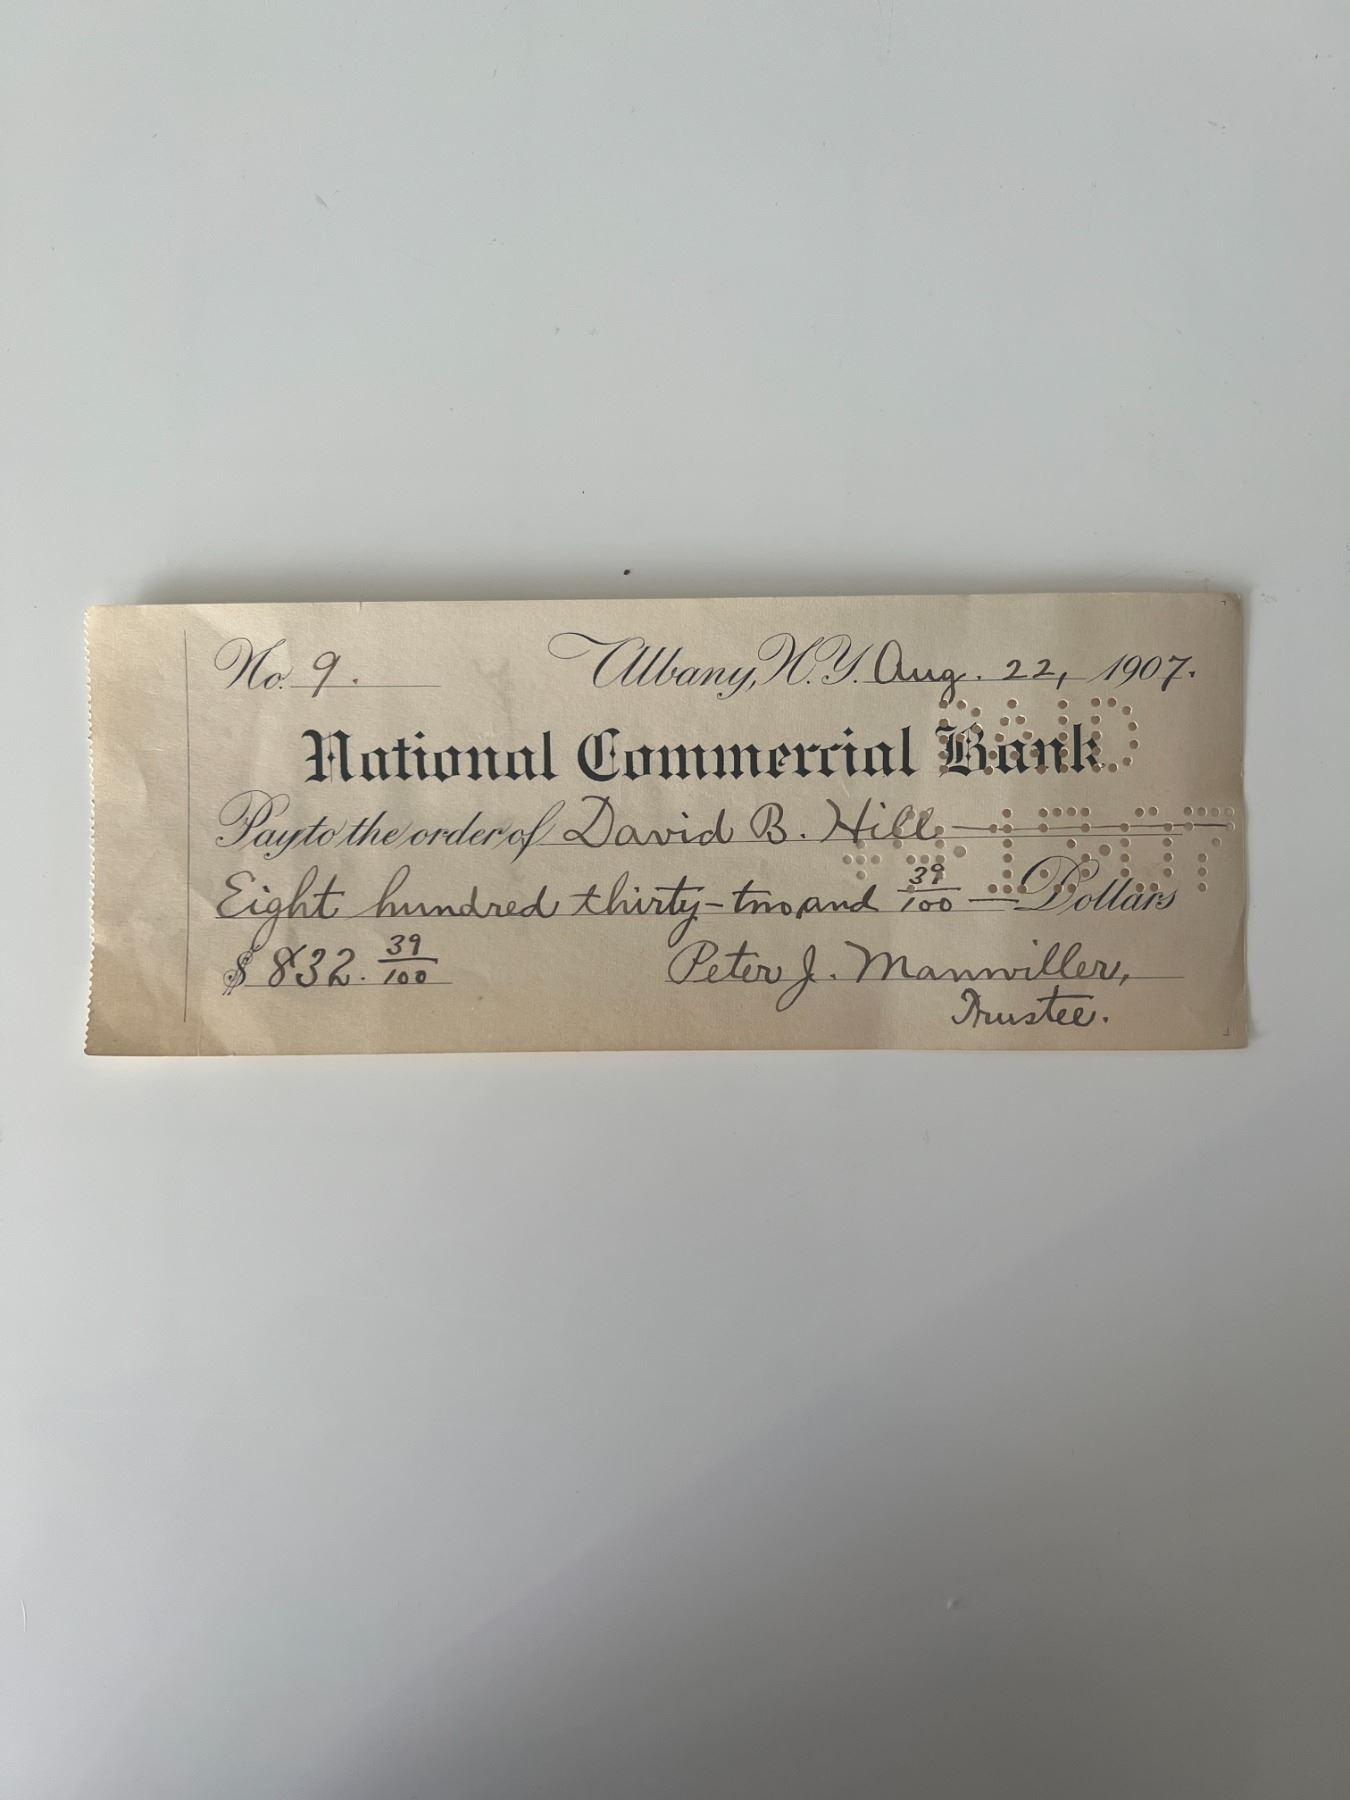 No. 9. Albany, N.Y. Aug. 22, 1907.
National Commercial Bank
PAID
Pay to the order of David B. Hill
Eight hundred thirty-two and 39/100 Dollars
$ 832. 39/100 Peter J. Manwiller,
Trustee.